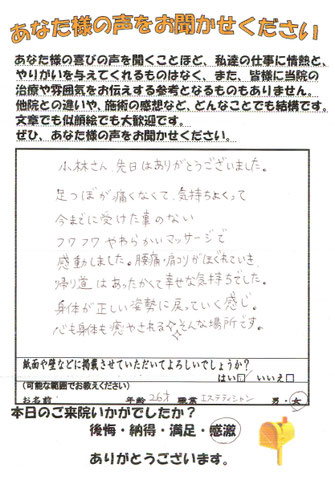 あなた様の声をお聞かせください
あなた様の喜びの声を聞くことほど、私達の仕事に情熱と、
やりがいを与えてくれるものはなく、また、皆様に当院の
治療や雰囲気をお伝えする参考となるものもありません。
他院との違いや、施術の感想など、どんなことでも結構です。
文章でも似顔絵でも大歓迎です。
ぜひ、あなた様の声をお聞かせください。
小林さん、先日はありがとうございました。
足つぼが痛くなくて、気持ちよくって
今までに受けた事のない
フワフワやわらかいマッサージで
感動しました。腰痛・肩コリがほぐれていき、
帰り道はあったかくて幸せな気持ちでした。
身体が正しい姿勢に戻っていく感じ。
心も身体も癒やされる そんな場所です。
紙面や壁などに掲載させていただいてよろしいでしょうか？
はい いいえ
（可能な範囲でお教えください）
お名前 年齢 26才 職業 エステティシャン 男・女
本日のご来院いかがでしたか？
後悔・納得・満足・感激
ありがとうございます。